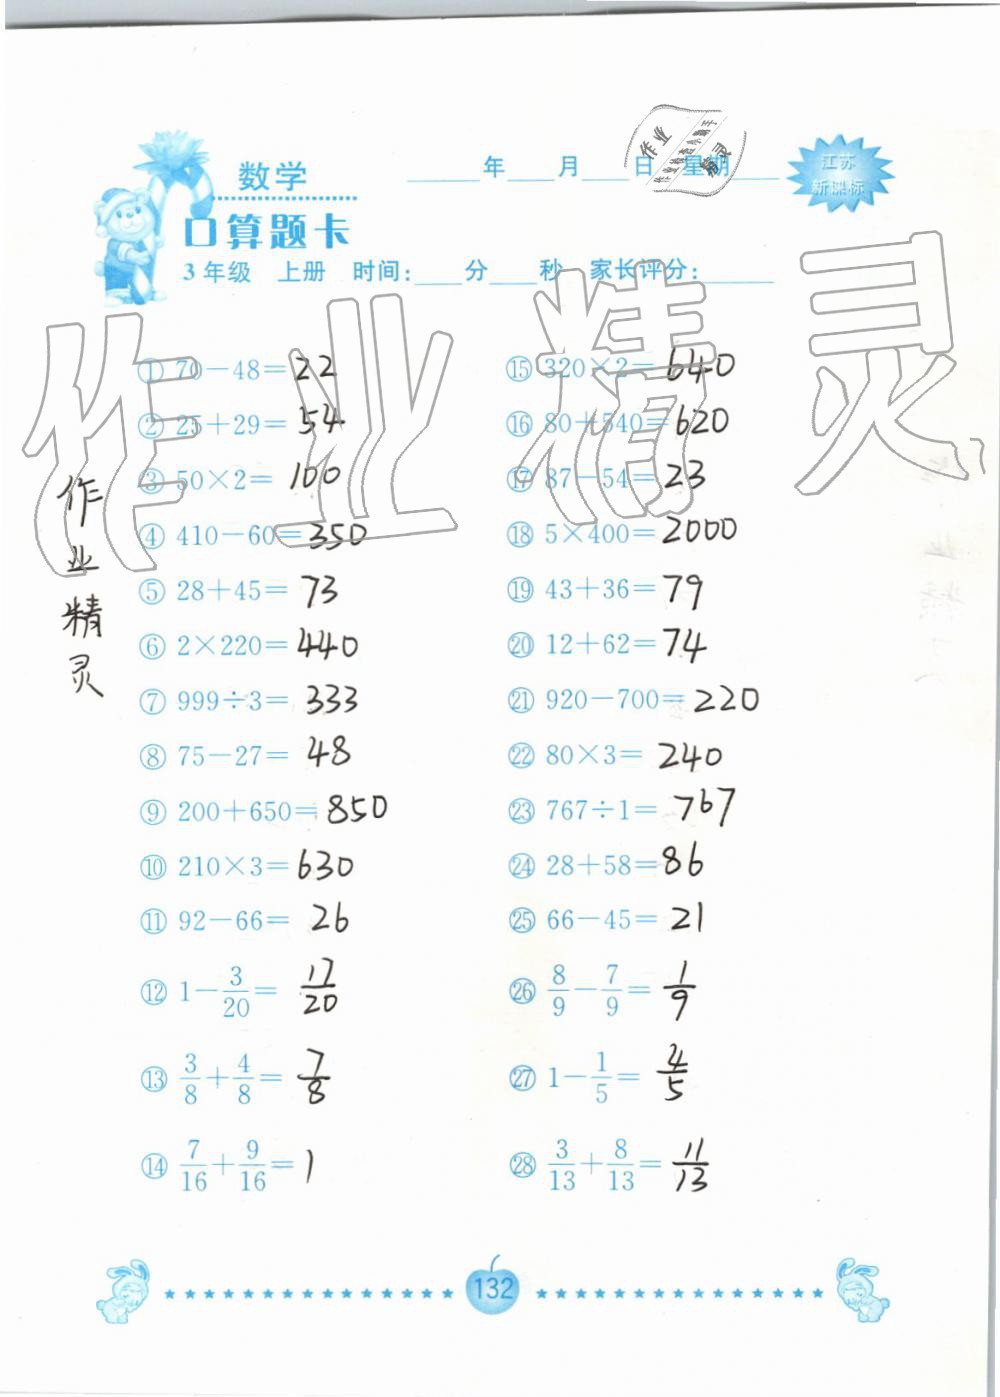 数学
____年____月____日 星期____
江苏
新课标
口算题卡
3年级 上册 时间:____分____秒 家长评分:______
作业精灵
作业
精灵
① 70-48=22
② 25+29=54
③ 50×2=100
④ 410-60=350
⑤ 28+45=73
⑥ 2×220=440
⑦ 999÷3=333
⑧ 75-27=48
⑨ 200+650=850
⑩ 210×3=630
⑪ 92-66=26
⑫ 1-3/20=17/20
⑬ 3/8+4/8=7/8
⑭ 7/16+9/16=1
⑮ 320×2=640
⑯ 80+540=620
⑰ 87-54=23
⑱ 5×400=2000
⑲ 43+36=79
⑳ 12+62=74
㉑ 920-700=220
㉒ 80×3=240
㉓ 767÷1=767
㉔ 28+58=86
㉕ 66-45=21
㉖ 8/9-7/9=1/9
㉗ 1-1/5=4/5
㉘ 3/13+8/13=11/13
作业精灵
132